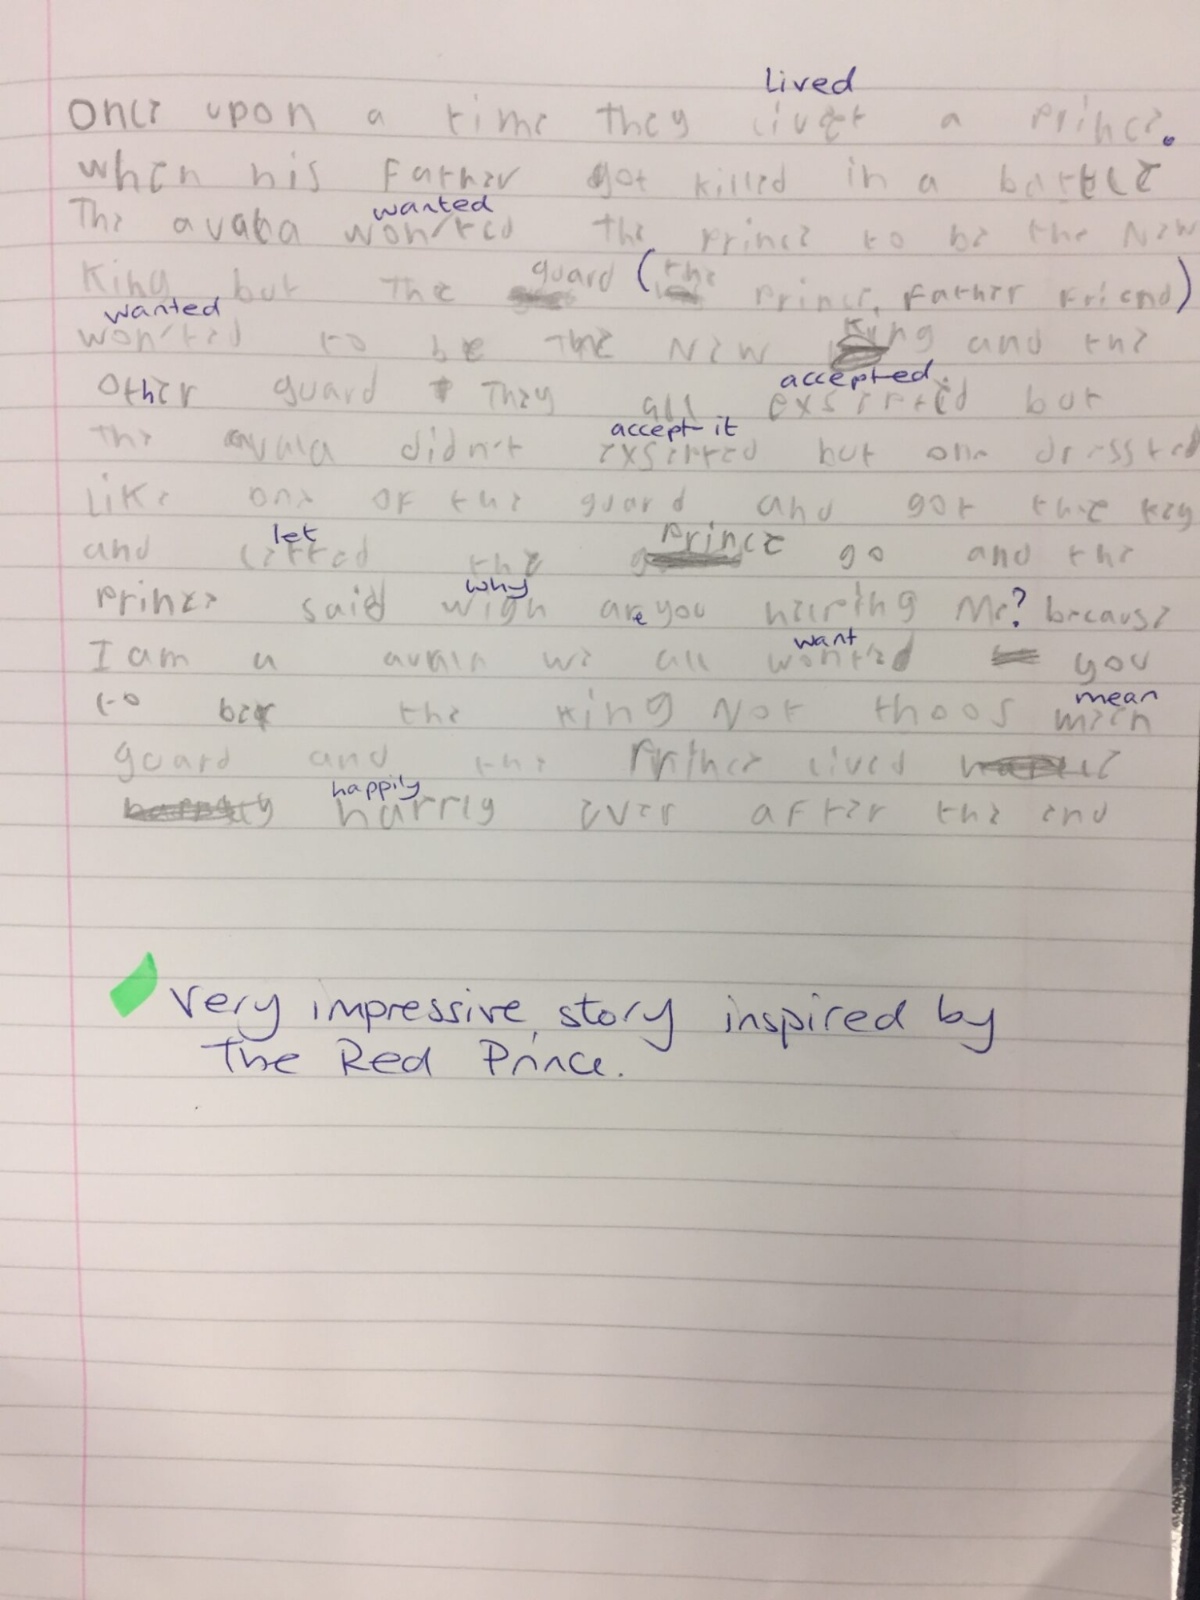 lived
Once upon a time they livet a prince.
when his Father got killed in a battle
wanted
The avala won'ted the prince to be the New
King but the guard (the prince, Father Friend)
wanted
won'ted to be the New King and the
other guard they all exsepted but
accepted
accept it
the avala didn't exsepted but one dressted
like one of the guard and got the key
let
and letted the prince go and the
why
prince said wigh are you helping Me? because
want
I am a avala we all wonted you
mean
to be the king Not thoos meen
guard and the Prince lived
happily
happly ever after the end
Very impressive, story inspired by
The Red Prince.